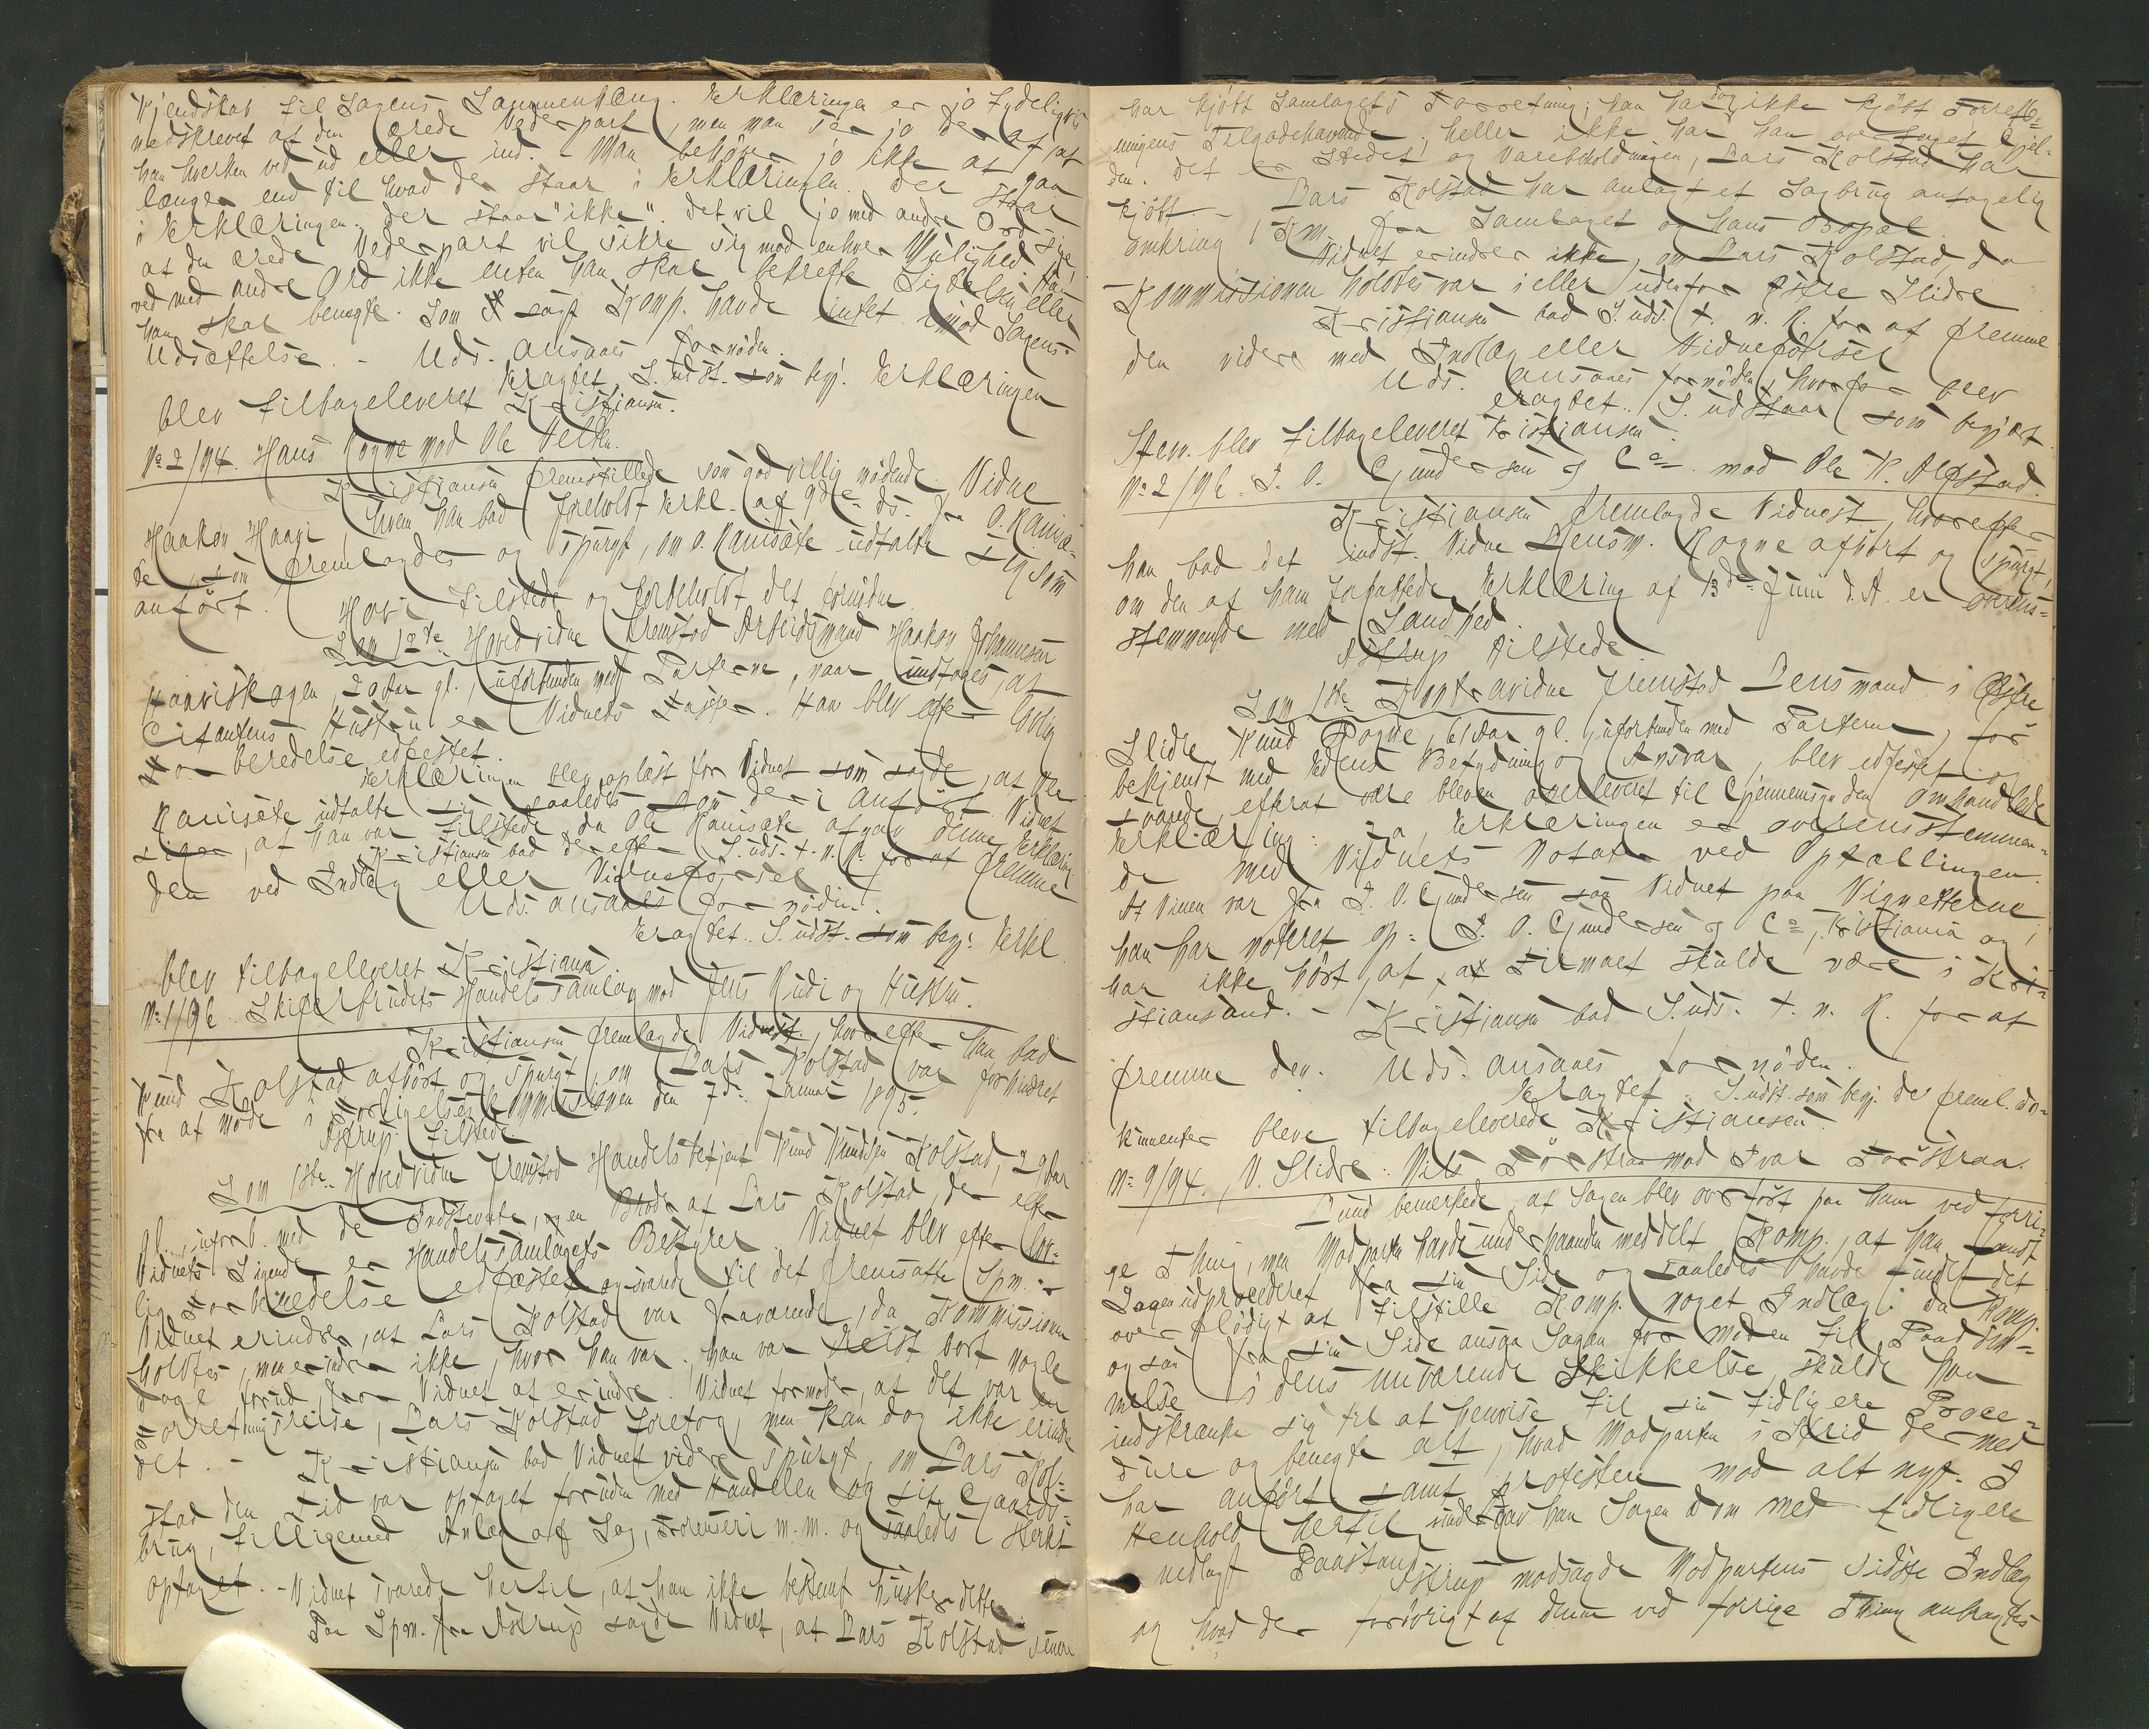 Kjendskab til Sagens Sammenhæng. Erklæringen er jo tydeligvis
nedskrevet af den ærede Vederpart, men man ser jo deraf, at
han hverken ved ud eller ind. - Man behøver jo ikke at gaa
længer end til hvad der staar i Erklæringen. Der staar
i Erklæringen: der staar "ikke". Det vil jo med andre Ord sige,
at den ærede Vederpart vil sikre sig mod enhver Mulighed. Han
ved med andre Ord ikke enten han skal bekræfte Sigtelsen eller
han skal benegte. Som sagt Komp. havde intet imod Sagens
Udsættelse. - Uds. ansaaes fornöden.
Eragtet: S. udst. som begj. Erklæringen
blev tilbageleveret Kristiansen.
No 2/94. Hans Rogne mod Ole Velta.
Kristiansen fremstillede som godvillig mödende Vidne
Haakon Haavi, hvem han bad foreholdt Erkl. af 9de ds. fra O. Ranisæ-
te, som fremlagdes og spurgt, om O. Ranisæte udtalte sig som
anfört.
Hovi tilstede og forbeholdt det fornödne.
Som 12te Hovedvidne fremstod Arbeidsmand Haakon Johannesen
Haaviskogen, 20 Aar gl., uforbunden med Parterne, naar undtages, at
Citantens Hustru er Vidnets Faster. Han blev efter lovlig
Forberedelse edfæstet.
Erklæringen blev oplæst for Vidnet som sagde, at Ole
Ranisæte udtalte sig saaledes som deri anfört. Vidnet
siger, at han var tilstede, da Ole Ranisæte afgav denne Erklæring
Kristiansen bad derefter S. uds. t. n. R. for at fremme
den ved Indlæg eller Vidneförsel
Uds. ansaaes fornöden.
Eragtet: S. udst. som begj. Erkl.
blev tilbageleveret Kristiansen.
No 1/96. Skiferbrudets Handelssamlag mod Jens Rudi og Hustru.
Kristiansen fremlagde Vidnest., hvorefter han bad
Knud Kolstad afhört og spurgt, om Lars Kolstad var forhindret
fra at möde i Forligelseskommissionen den 7de Januar 1895.
Astrup tilstede
Som 1ste Hovedvidne fremstod Handelsbetjent Knud Knudsen Kolstad, 29 Aar
gl., uforb. med de Indstevnte, en Broder af Lars Kolstad, der efter
Vidnets Sigende er Handelssamlagets Bestyrer. Vidnet blev efter lov-
lig Forberedelse edfæstet og svarede til det fremsatte Spm.:
Vidnet erindrer, at Lars Kolstad var fraværende, da Kommissionen
holdtes, men erindrer ikke, hvor han var; han var reist bort nogle
Dage forud, tror Vidnet at erindre. Vidnet formoder, at det var en
Forretningsreise, Lars Kolstad foretog, men kan dog ikke erindre
det. -
Kristiansen bad Vidnet videre spurgt, om Lars Kol-
stad den Tid var optaget foruden med Handelen og sit Gaards-
brug, tilligemed Anlæg af Sag, m.m. og saaledes sterkt
optaget. - Vidnet svarede hertil, at han ikke bestemt husker dette.
Paa Spm. fra Astrup sagde Vidnet, at Lars Kolstad senere
har kjöbt Samlagets Forretning; han har dog ikke kjöbt Forret-
ningens Tilgodehavende; heller ikke har han overtaget Gjel-
den. Det er Stedet og Varebeholdningen, Lars Kolstad har
kjöbt. - Lars Kolstad har anlagt et Sagbrug antagelig
omkring 1 Km. fra Samlaget og hans Bopæl.
Vidnet erindrer ikke, om Lars Kolstad, da
Kommissionen holdtes var i eller udenfor Østre Slidre
Kristiansen bad S. uds. t. n. R. for at fremme
den videre med Indlæg eller Vidneförsel
Uds. ansaaes fornöden, hvorfor blev
eragtet: S. udstaar som begjært
Stevn. blev tilbageleveret Kristiansen.
No 2/96. J. O. Gundersen & Co. mod Ole K. Alfstad.
Kristiansen fremlagde Vidnest., hvorefter
han bad det indst. Vidne Lensm. Rogne afhört og spurgt,
om den af ham forfattede Erklæring af 13de Juni d.A. er overens-
stemmende med Sandhed.
Astrup tilstede.
Som 1ste Kontravidne fremstod Lensmand i Østre
Slidre Knud Rogne, 61 Aar gl., uforbunden med Parterne, for
bekjendt med Edens Betydning og Ansvar, blev edfæstet og
svarede, efterat være bleven overleveret til Gjennemsyn den omhandlede
Erklæring: Ja, Erklæringen er overensstemmen-
de med Vidnets Notater ved Optællingen.
At Vinen var fra J. O. Gundersen saa Vidnet paa Vignetterne
han har noteret op: J. O. Gundersen & Co, Kristiania og
har ikke hört, at Firmaet skulde være i Kri-
stiansand. -
Kristiansen bad S. uds. t. n. R. for at
fremme den. Uds. ansaaes fornöden.
Eragtet: S. udst. som begj. De freml. Do-
kumenter bleve tilbageleverede Kristiansen.
No 9/94. V. Slidre: Nils Förstraa mod Ivar Förstraa.
Lund bemerkede at Sagen blev overfört paa ham ved forri-
ge Thing, men Modparten havde underhaanden meddelt Komp., at han fandt
Sagen udprocederet fra sin Side og saaledes havde fundet det
overflödigt at tilstille Komp. noget Indlæg. Da Komp.
ogsaa fra sin Side ansaa Sagen for moden til Paadöm-
melse i dens nuværende Skikkelse, skulde han
indskrænke sig til at henvise til sin tidligere Proce-
dure og benegte alt, hvad Modparten i Strid dermed
har anfört samt protestere mod alt nyt. I
Henhold hertil indlod han Sagen Dom med tidligere
nedlagt Paastand.
Astrup modsagde Modpartens sidste Indlæg
og hvad der forövrigt af denne ved forrige Thing anbragtes